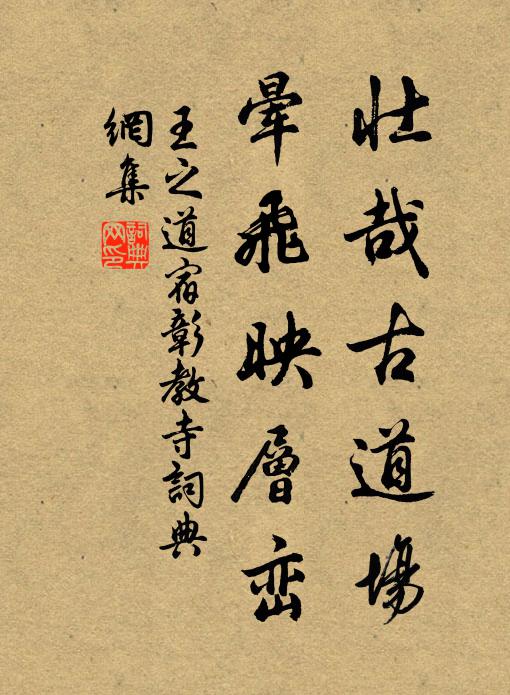 壮哉古道場
晕飛映層峦
王之道宿彰教寺詞典
網集
詞典网印